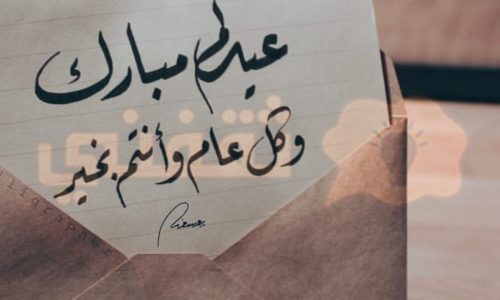 عيدكم مبارك
وكل عام وأنتم بخير
ثقفني